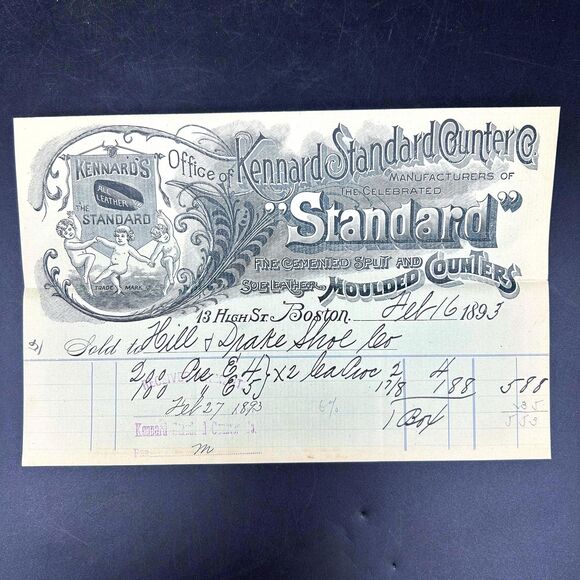 KENNARD'S
ALL LEATHER
THE STANDARD
TRADE MARK
Office of Kennard Standard Counter Co.
MANUFACTURERS OF
THE CELEBRATED
"Standard"
FINE CEMENTED SPLIT AND
SOLE LEATHER MOULDED COUNTERS
13 HIGH ST. Boston. Feb 16 1893
Sold to Hill & Drake Shoe Co
200 Prs E 4 } x 2 2 4
100 " E 5 } 1 7/8 1 88 5 88
Feb 27 1893 6% 35
Kennard Counter Co. 1 Box 5 53
Per M